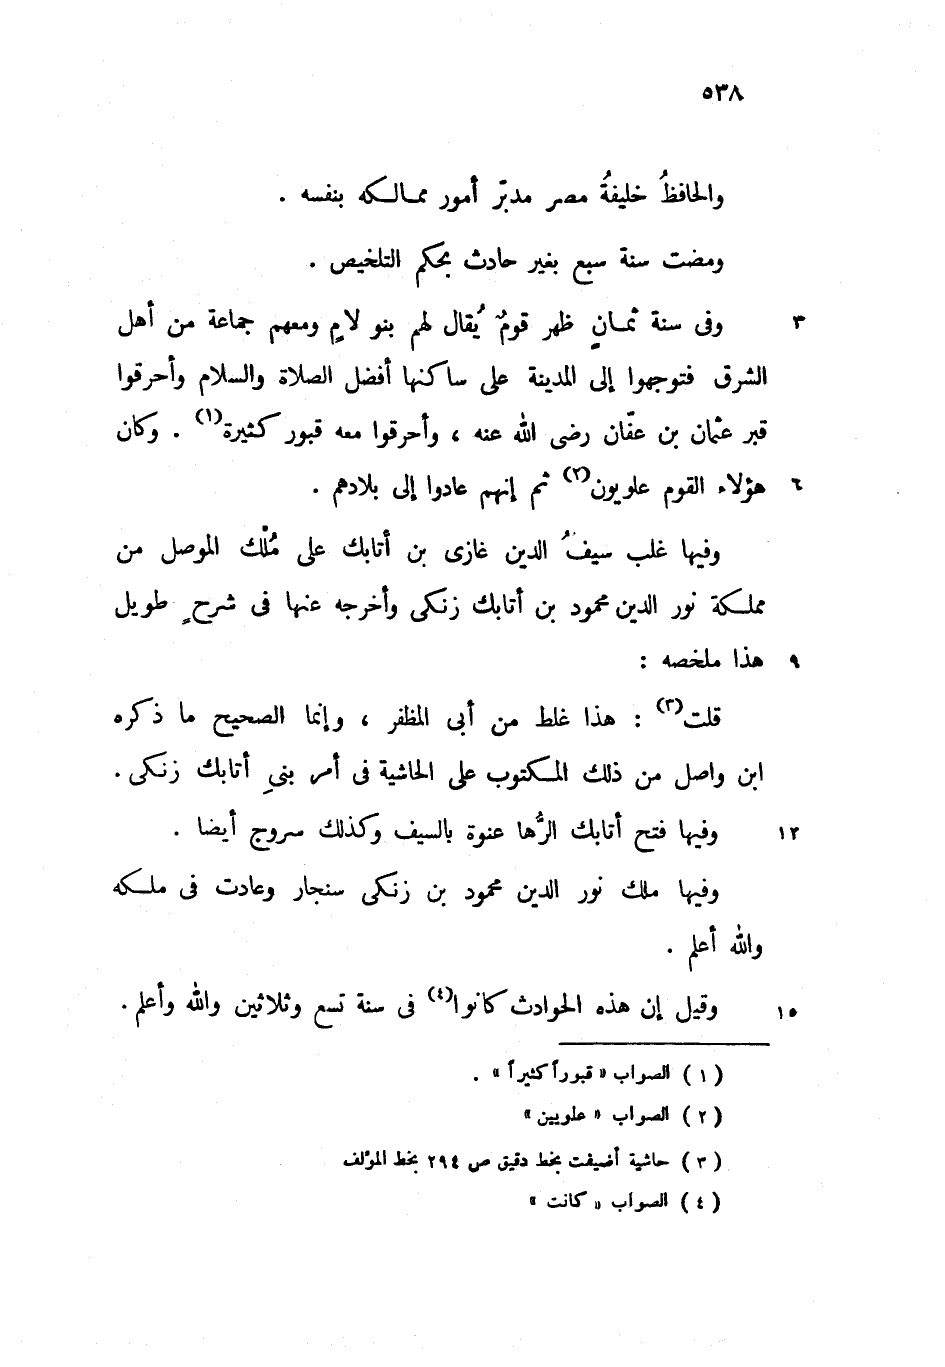 ٥٣٨
والحافظُ خليفةُ مصر مدبّر أمور ممالكه بنفسه .
ومضت سنة سبع بغير حادث بحكم التلخيص .
٣ وفى سنة ثمانٍ ظهر قومٌ يُقال لهم بنو لامٍ ومعهم جماعة من أهل
الشرق فتوجهوا إلى المدينة على ساكنها أفضل الصلاة والسلام وأحرقوا
قبر عثمان بن عفّان رضى الله عنه ، وأحرقوا معه قبور كثيرة(١) . وكان
٦ هؤلاء القوم علويون(٢) ثم إنهم عادوا إلى بلادهم .
وفيها غلب سيفُ الدين غازى بن أتابك على مُلْك الموصل من
مملكة نور الدين محمود بن أتابك زنكى وأخرجه عنها فى شرحٍ طويل
٩ هذا ملخصه :
قلت(٣) : هذا غلط من أبى المظفر ، وإنما الصحيح ما ذكره
ابن واصل من ذلك المكتوب على الحاشية فى أمر بنىِ أتابك زنكى .
١٢ وفيها فتح أتابك الرُّها عنوة بالسيف وكذلك سروج أيضا .
وفيها ملك نور الدين محمود بن زنكى سنجار وعادت فى ملكه
والله أعلم .
١٥ وقيل إن هذه الحوادث كانوا(٤) فى سنة تسع وثلاثين والله وأعلم .
(١) الصواب « قبوراً كثيراً » .
(٢) الصواب « علويين »
(٣) حاشية أضيفت بخط دقيق ص ٢٩٤ بخط المؤلف
(٤) الصواب « كانت »